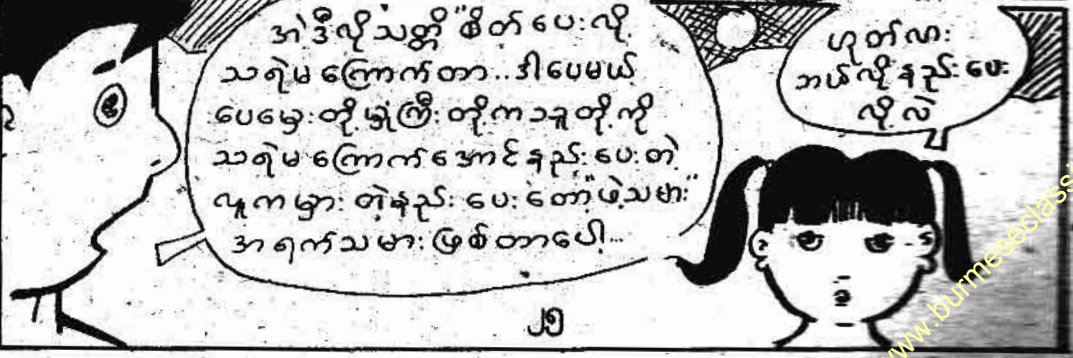 အဲဒီလိုသတ္တိ"စိတ်ပေးလို့
သရဲမကြောက်တာ..ဒါပေမယ်
ပေမွှေးတို့မှုံကြီးတို့ကသူတို့ကို
သရဲမကြောက်အောင်နည်းပေးတဲ့
လူကမှားတဲ့နည်းပေးတော့"ဖဲသမား"
အရက်သမားဖြစ်တာပေါ့...
ဟုတ်လား
ဘယ်လိုနည်းပေး
လို့လဲ
၂၅
www.burmeseclassi